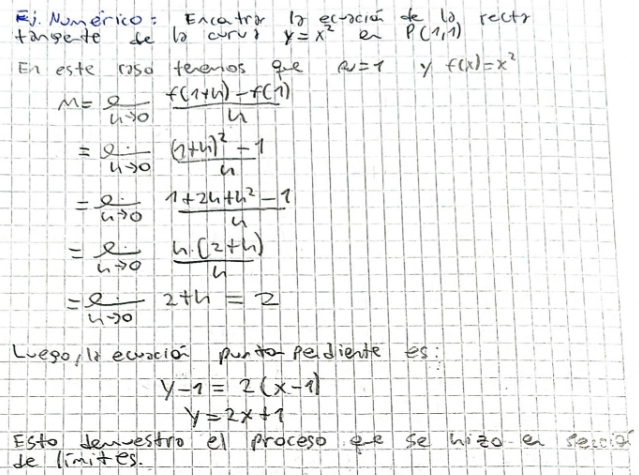 Ej. Numérico: Encontrar la ecuación de la recta
tangente de la curva y = x² en P(1,1)
En este caso tenemos que a=1 y f(x)=x²
m = l. h→0 f(1+h) - f(1) / h
= l. h→0 (1+h)² - 1 / h
= l. h→0 1+2h+h² - 1 / h
= l. h→0 h·(2+h) / h
= l. h→0 2+h = 2
Luego, la ecuación punto pendiente es:
y-1 = 2(x-1)
y = 2x+1
Esto demuestra el proceso que se hizo en sección
de límites.